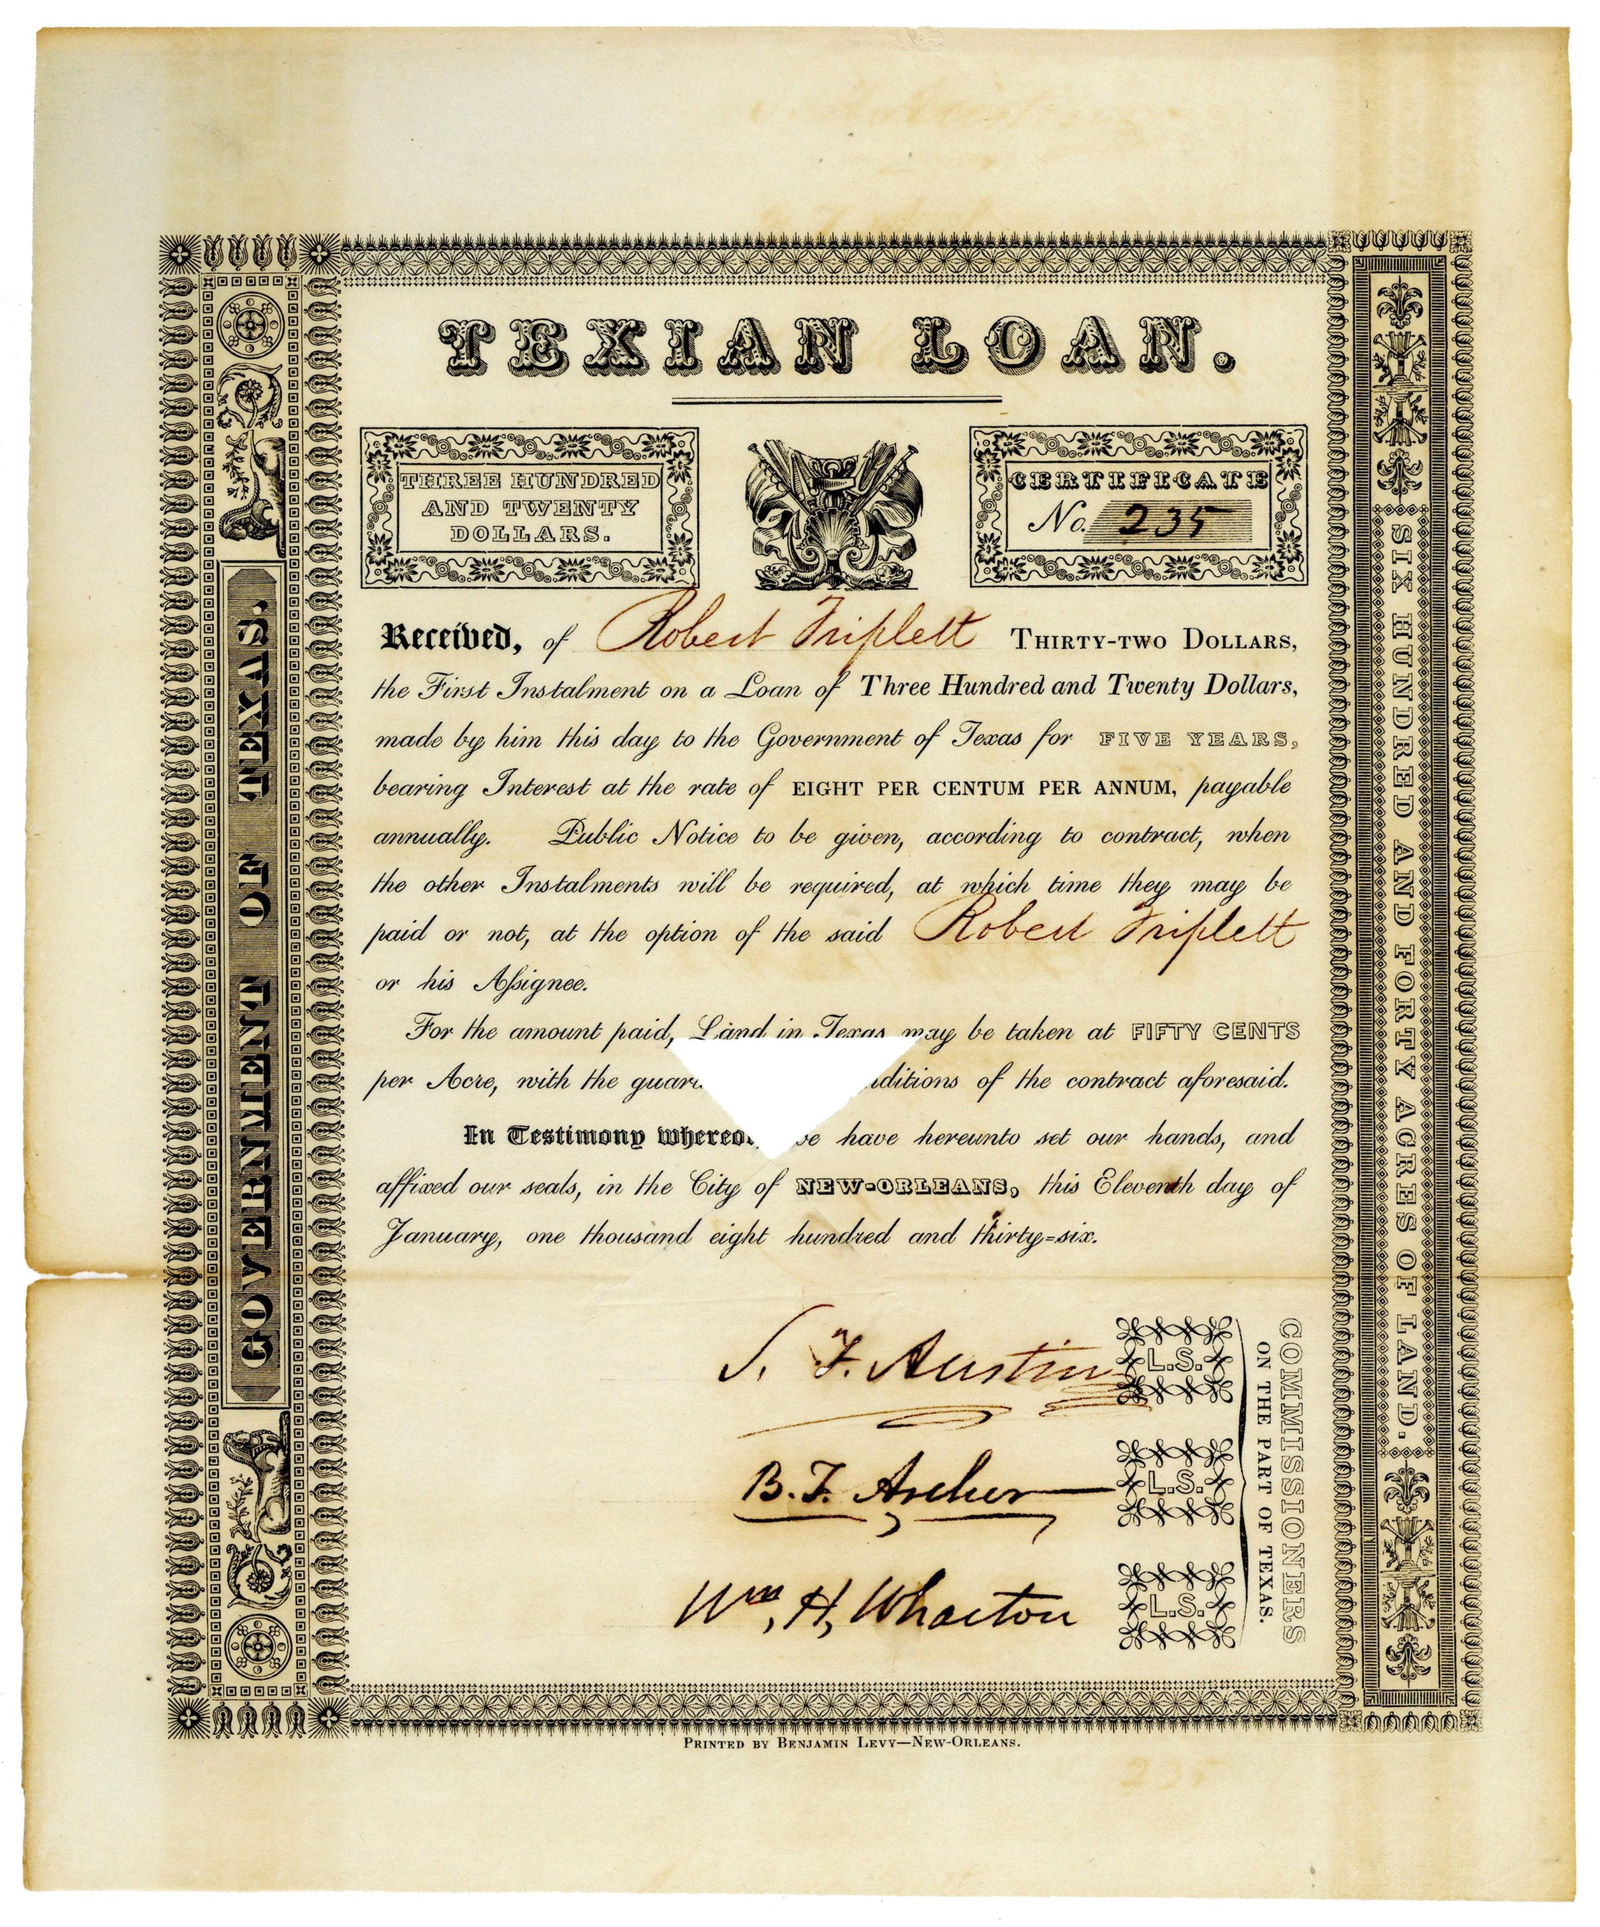 TEXIAN LOAN.
THREE HUNDRED
AND TWENTY
DOLLARS.
CERTIFICATE
No. 235
Received, of Robert Triplett THIRTY-TWO DOLLARS,
the First Instalment on a Loan of Three Hundred and Twenty Dollars,
made by him this day to the Government of Texas for FIVE YEARS,
bearing Interest at the rate of EIGHT PER CENTUM PER ANNUM, payable
annually. Public Notice to be given, according to contract, when
the other Instalments will be required, at which time they may be
paid or not, at the option of the said Robert Triplett
or his Assignee.
For the amount paid, Land in Texas may be taken at FIFTY CENTS
per Acre, with the of the contract aforesaid.
In Testimony have hereunto set our hands, and
affixed our seals, in the City of NEW-ORLEANS, this Eleventh day of
January, one thousand eight hundred and thirty-six.
S. F. Austin L.S.
B. T. Archer L.S.
Wm. H. Wharton L.S.
COMMISSIONERS
ON THE PART OF TEXAS.
GOVERNMENT OF TEXAS.
SIX HUNDRED AND FORTY ACRES OF LAND.
PRINTED BY BENJAMIN LEVY—NEW-ORLEANS.